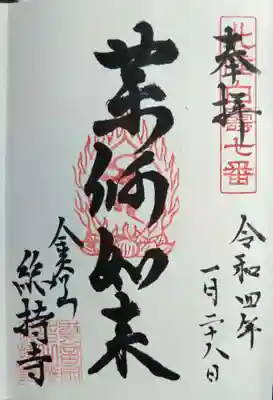 白壽七番
奉拝
令和四年
一月二十八日
薬師如来
総持寺